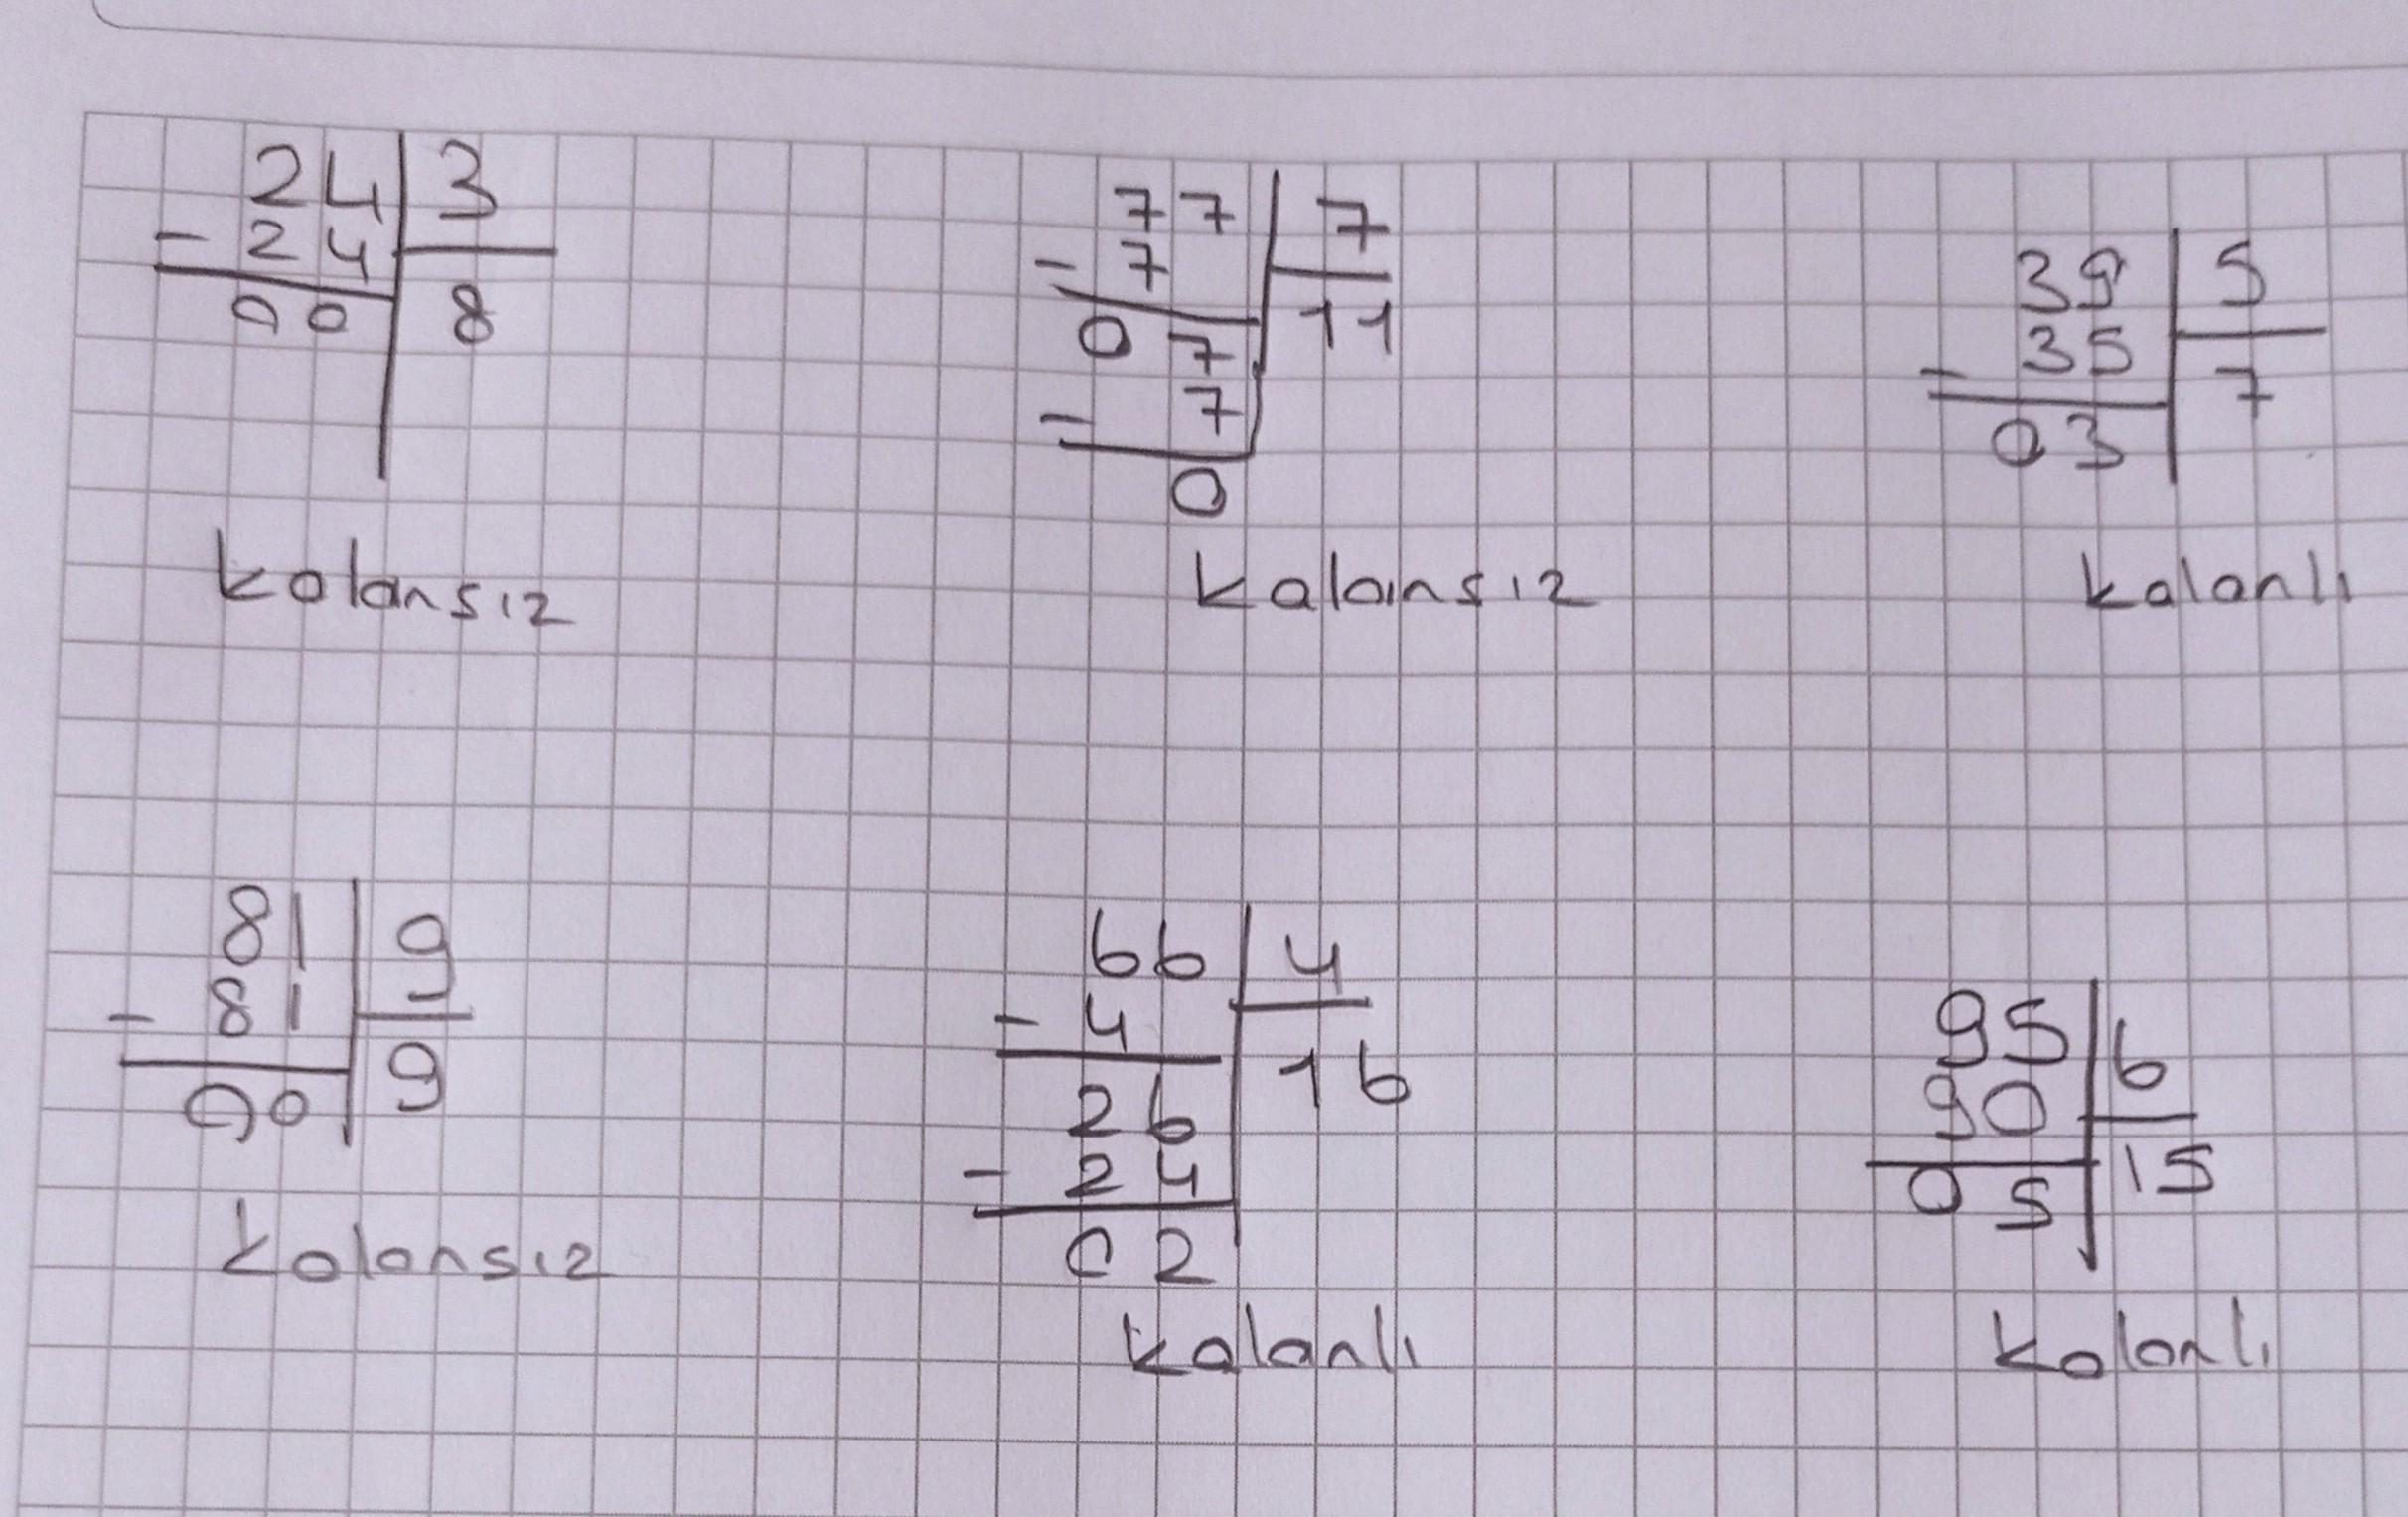 24 3
- 24
00 8
kalansız
77 7
- 7
07 11
- 7
0
kalansız
39 5
- 35 7
03
kalanlı
81 9
- 81
00 9
kalansız
66 4
- 4
26 16
- 24
02
kalanlı
95 6
90
05 15
kalanlı